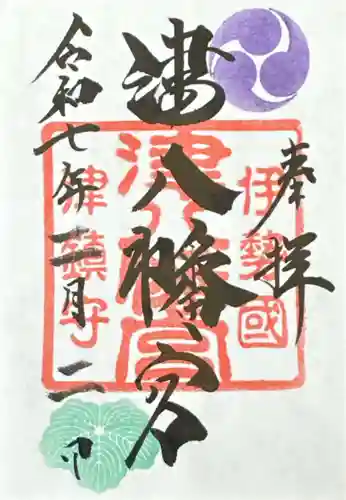 奉拝
津八幡宮
令和七年 月 日
伊勢國
津八幡宮
津鎮守